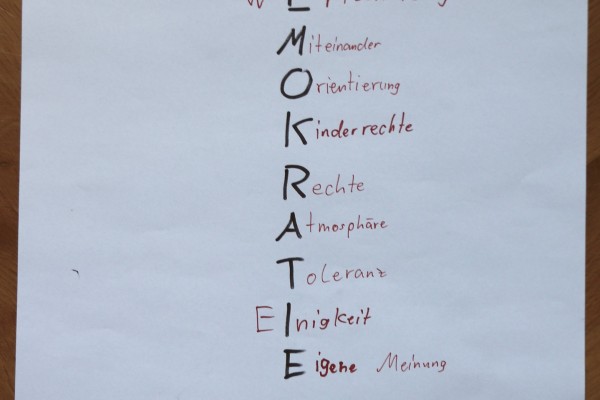 Miteinander
Orientierung
Kinderrechte
Rechte
Atmosphäre
Toleranz
EInigkeit
Eigene Meinung